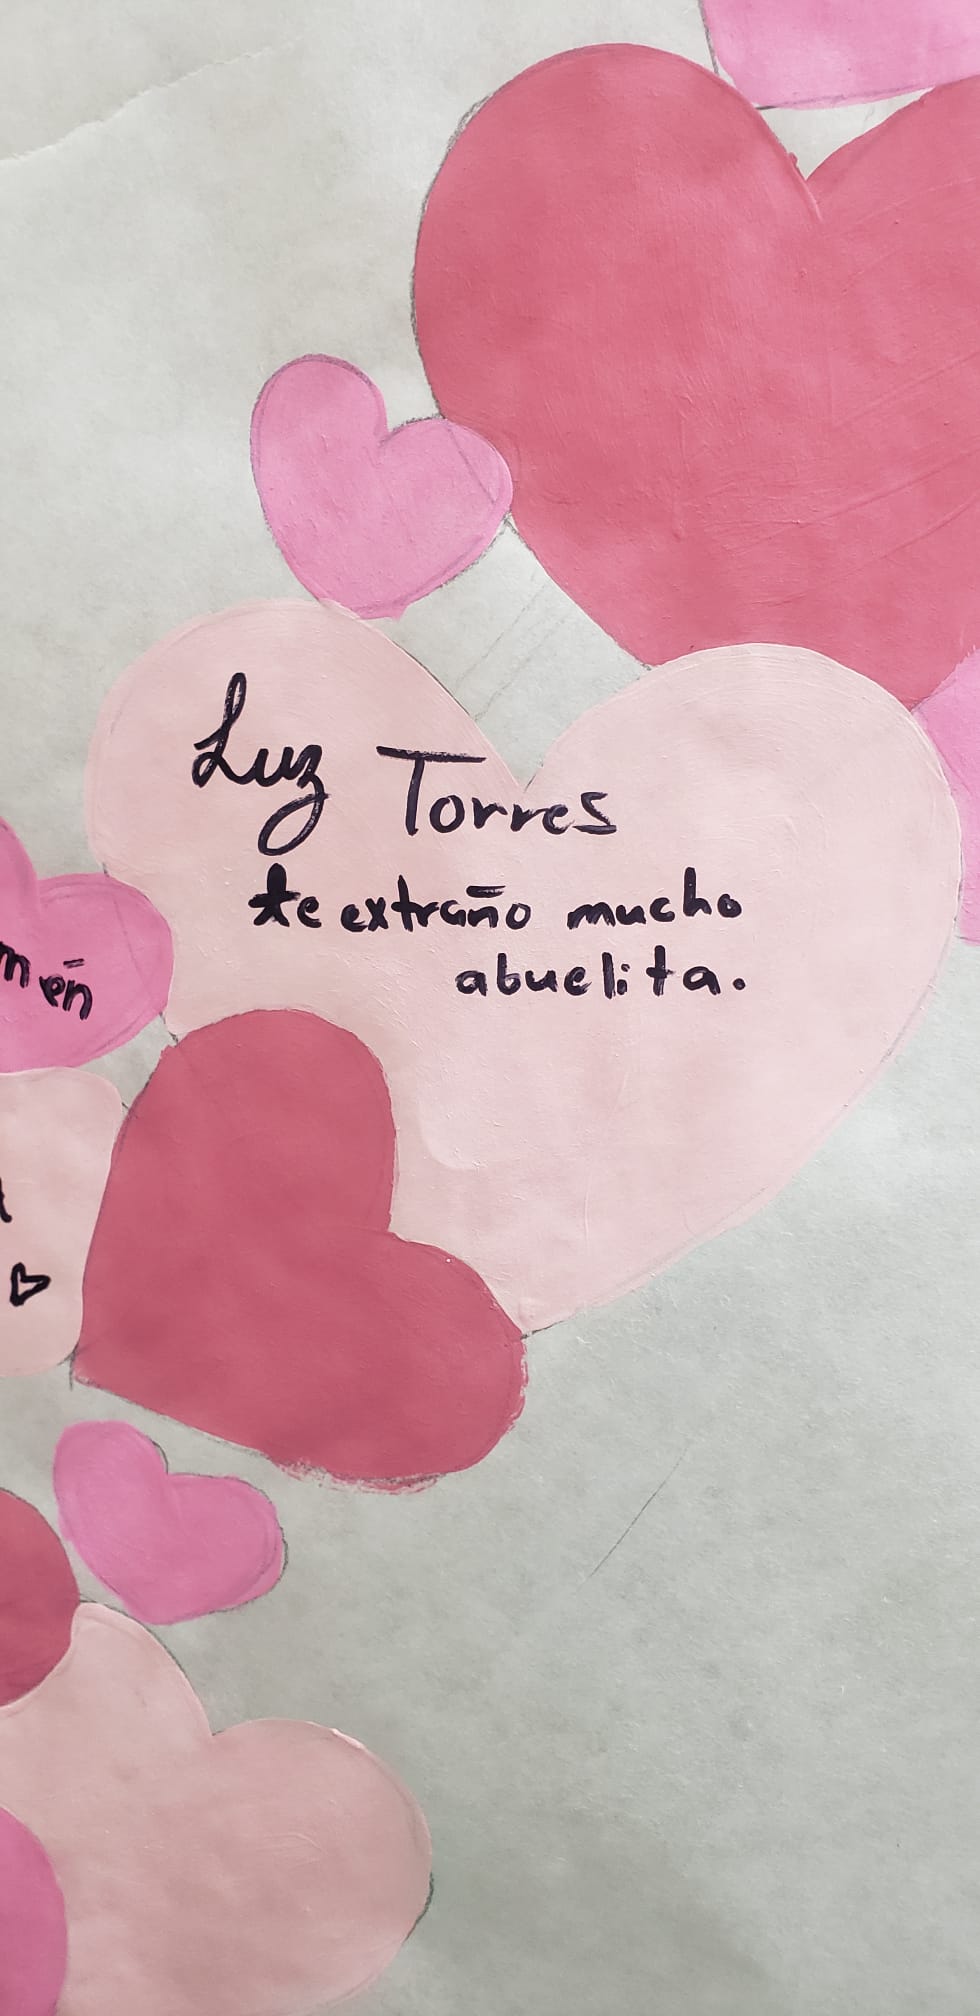 Luz Torres
te extraño mucho
abuelita.